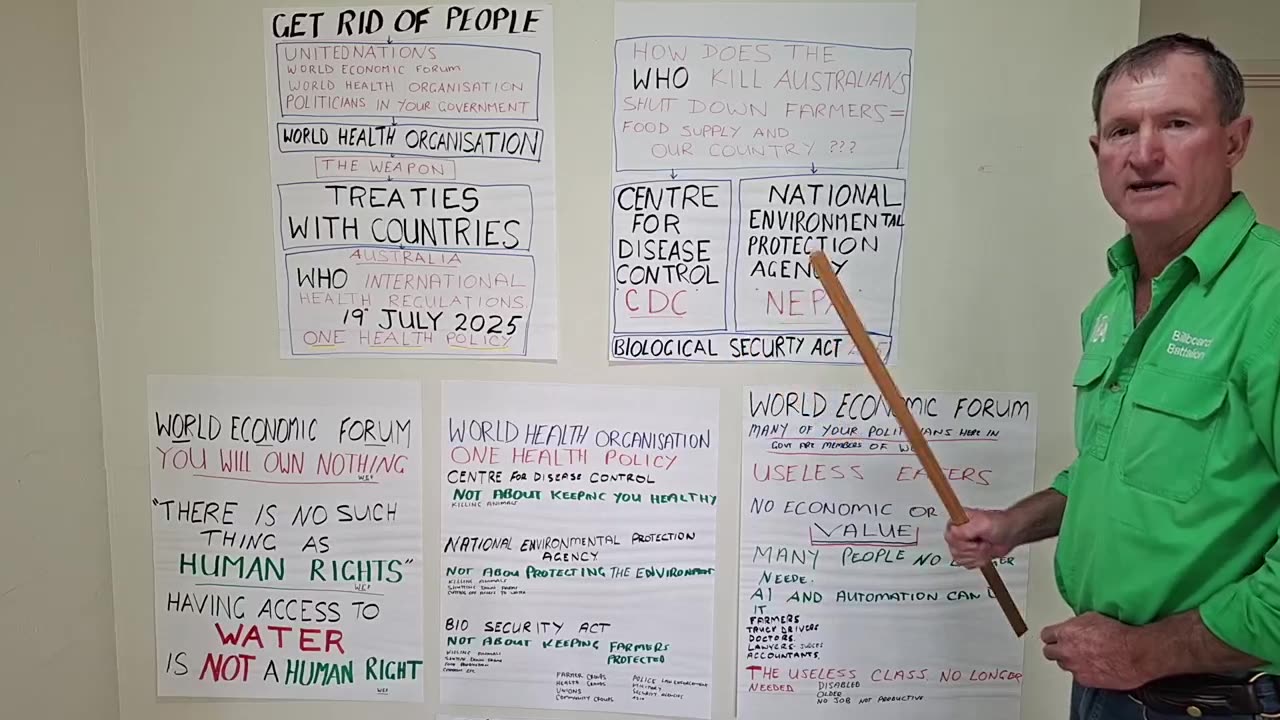 GET RID OF PEOPLE
UNITED NATIONS
WORLD ECONOMIC FORUM
WORLD HEALTH ORGANISATION
POLITICIANS IN YOUR GOVERNMENT
WORLD HEALTH ORGANISATION
THE WEAPON
TREATIES
WITH COUNTRIES
AUSTRALIA
WHO INTERNATIONAL
HEALTH REGULATIONS
19 JULY 2025
ONE HEALTH POLICY
HOW DOES THE
WHO KILL AUSTRALIANS
SHUT DOWN FARMERS=
FOOD SUPPLY AND
OUR COUNTRY ???
CENTRE
FOR
DISEASE
CONTROL
"CDC"
NATIONAL
ENVIRONMENTAL
PROTECTION
AGENCY
"NEPA"
BIOLOGICAL SECURTY ACT
WORLD ECONOMIC FORUM
YOU WILL OWN NOTHING
WEF
"THERE IS NO SUCH
THING AS
HUMAN RIGHTS"
WEF
HAVING ACCESS TO
WATER
IS NOT A HUMAN RIGHT
WEF
WORLD HEALTH ORGANISATION
ONE HEALTH POLICY
CENTRE FOR DISEASE CONTROL
NOT ABOUT KEEPING YOU HEALTHY
KILLING ANIMALS
NATIONAL ENVIRONMENTAL PROTECTION
AGENCY
NOT ABOU PROTECTING THE ENVIRONMENT
KILLING ANIMALS
SHUTTING DOWN FARMS
CUTTING OFF ACCESS TO WATER
BIO SECURITY ACT
NOT ABOUT KEEPING FARMERS
PROTECTED
KILLING ANIMALS
SHUTTING DOWN FARMS
FARMER GROUPS
HEALTH GROUPS
UNIONS
COMMUNITY GROUPS
POLICE LAW ENFORCEMENT
MILITARY
SECURITY AGENCIES
ASIO
WORLD ECONOMIC FORUM
MANY OF YOUR POLITICIANS HERE IN
GOVT ARE MEMBERS OF
USELESS EATERS
NO ECONOMIC OR
VALUE
MANY PEOPLE NO
NEEDE
AI AND AUTOMATION CAN
IT
FARMERS
TRUCK DRIVERS
DOCTORS
LAWYERS JUDGES
ACCOUNTANTS
THE USELESS CLASS NO LONGER
NEEDED
DISABLED
OLDER
NO JOB NOT PRODUCTIVE
Billboard
Battalion